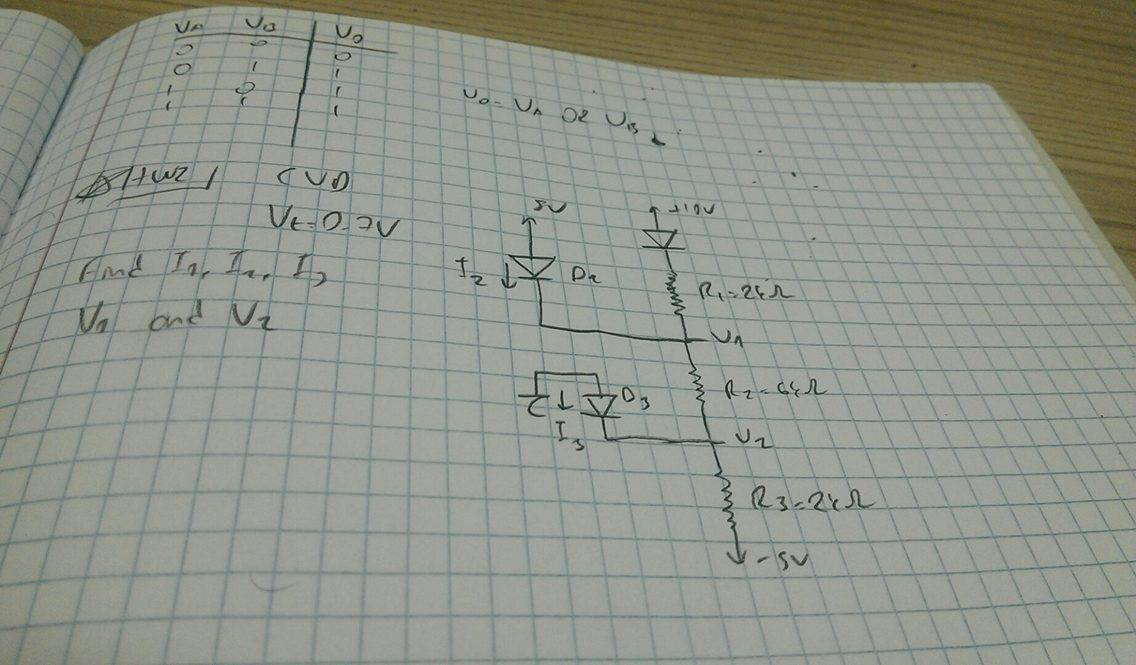 VA VB VO
0 0 0
0 1 1
1 0 1
1 1 1
VO = VA OR VB
HW2 CVD
Vt=0.7V
Find I1, I2, I3
V1 and V2
5V
+10V
I2
D2
R1=2kΩ
V1
R2=6kΩ
D3
I3
V2
R3=2kΩ
-5V